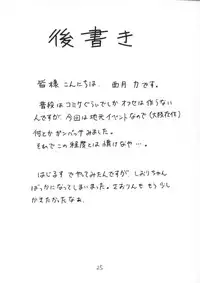 後書き
皆様こんにちは、面月力です。
普段はコミケぐらいでしかオフセは作らない
んですが、今回は地元イベントなので(大阪在住)
何とかガンバッてみました。
それでこの程度とは情けなや…。
はじるすでやってみたんですが、しおりちゃん
ばっかになってしまいました。さおりんももう少し
かきたかったなあ。
25